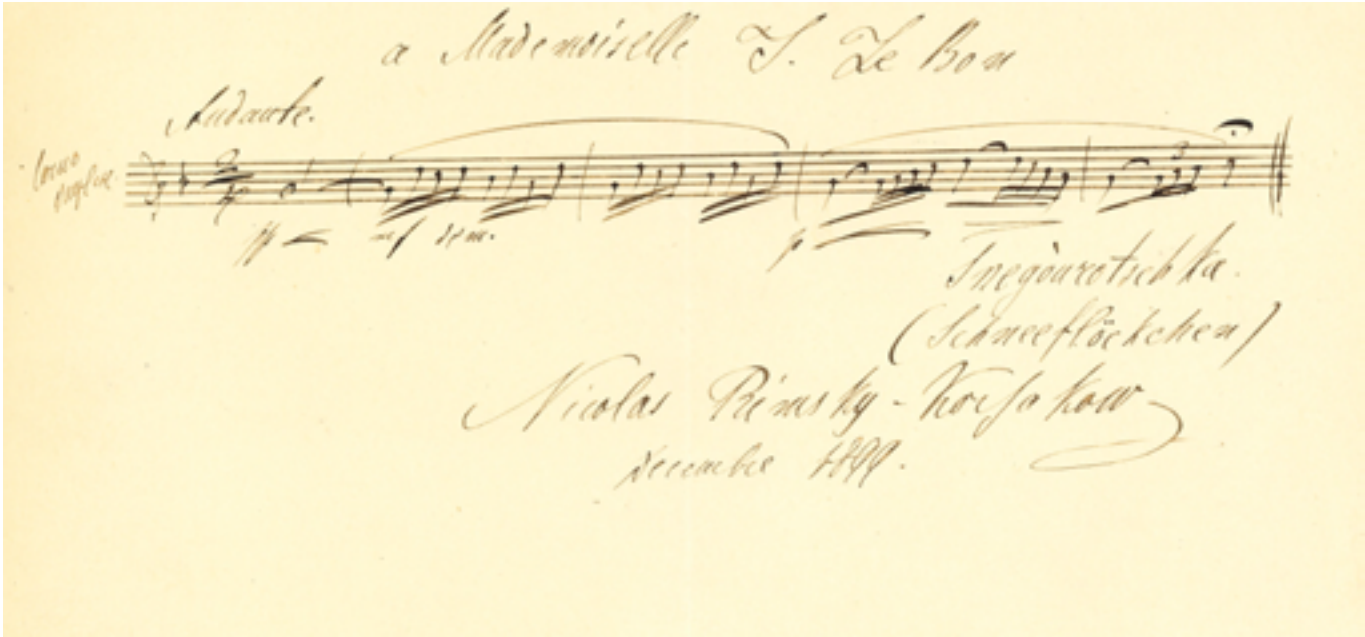 a Mademoiselle S. Le Bon
Andante.
Corno
inglese.
pp
mf dim.
3
p
Snegòurotschka.
(Schneeflöckchen)
Nicolas Rimsky-Korsakow
Decembre 1899.